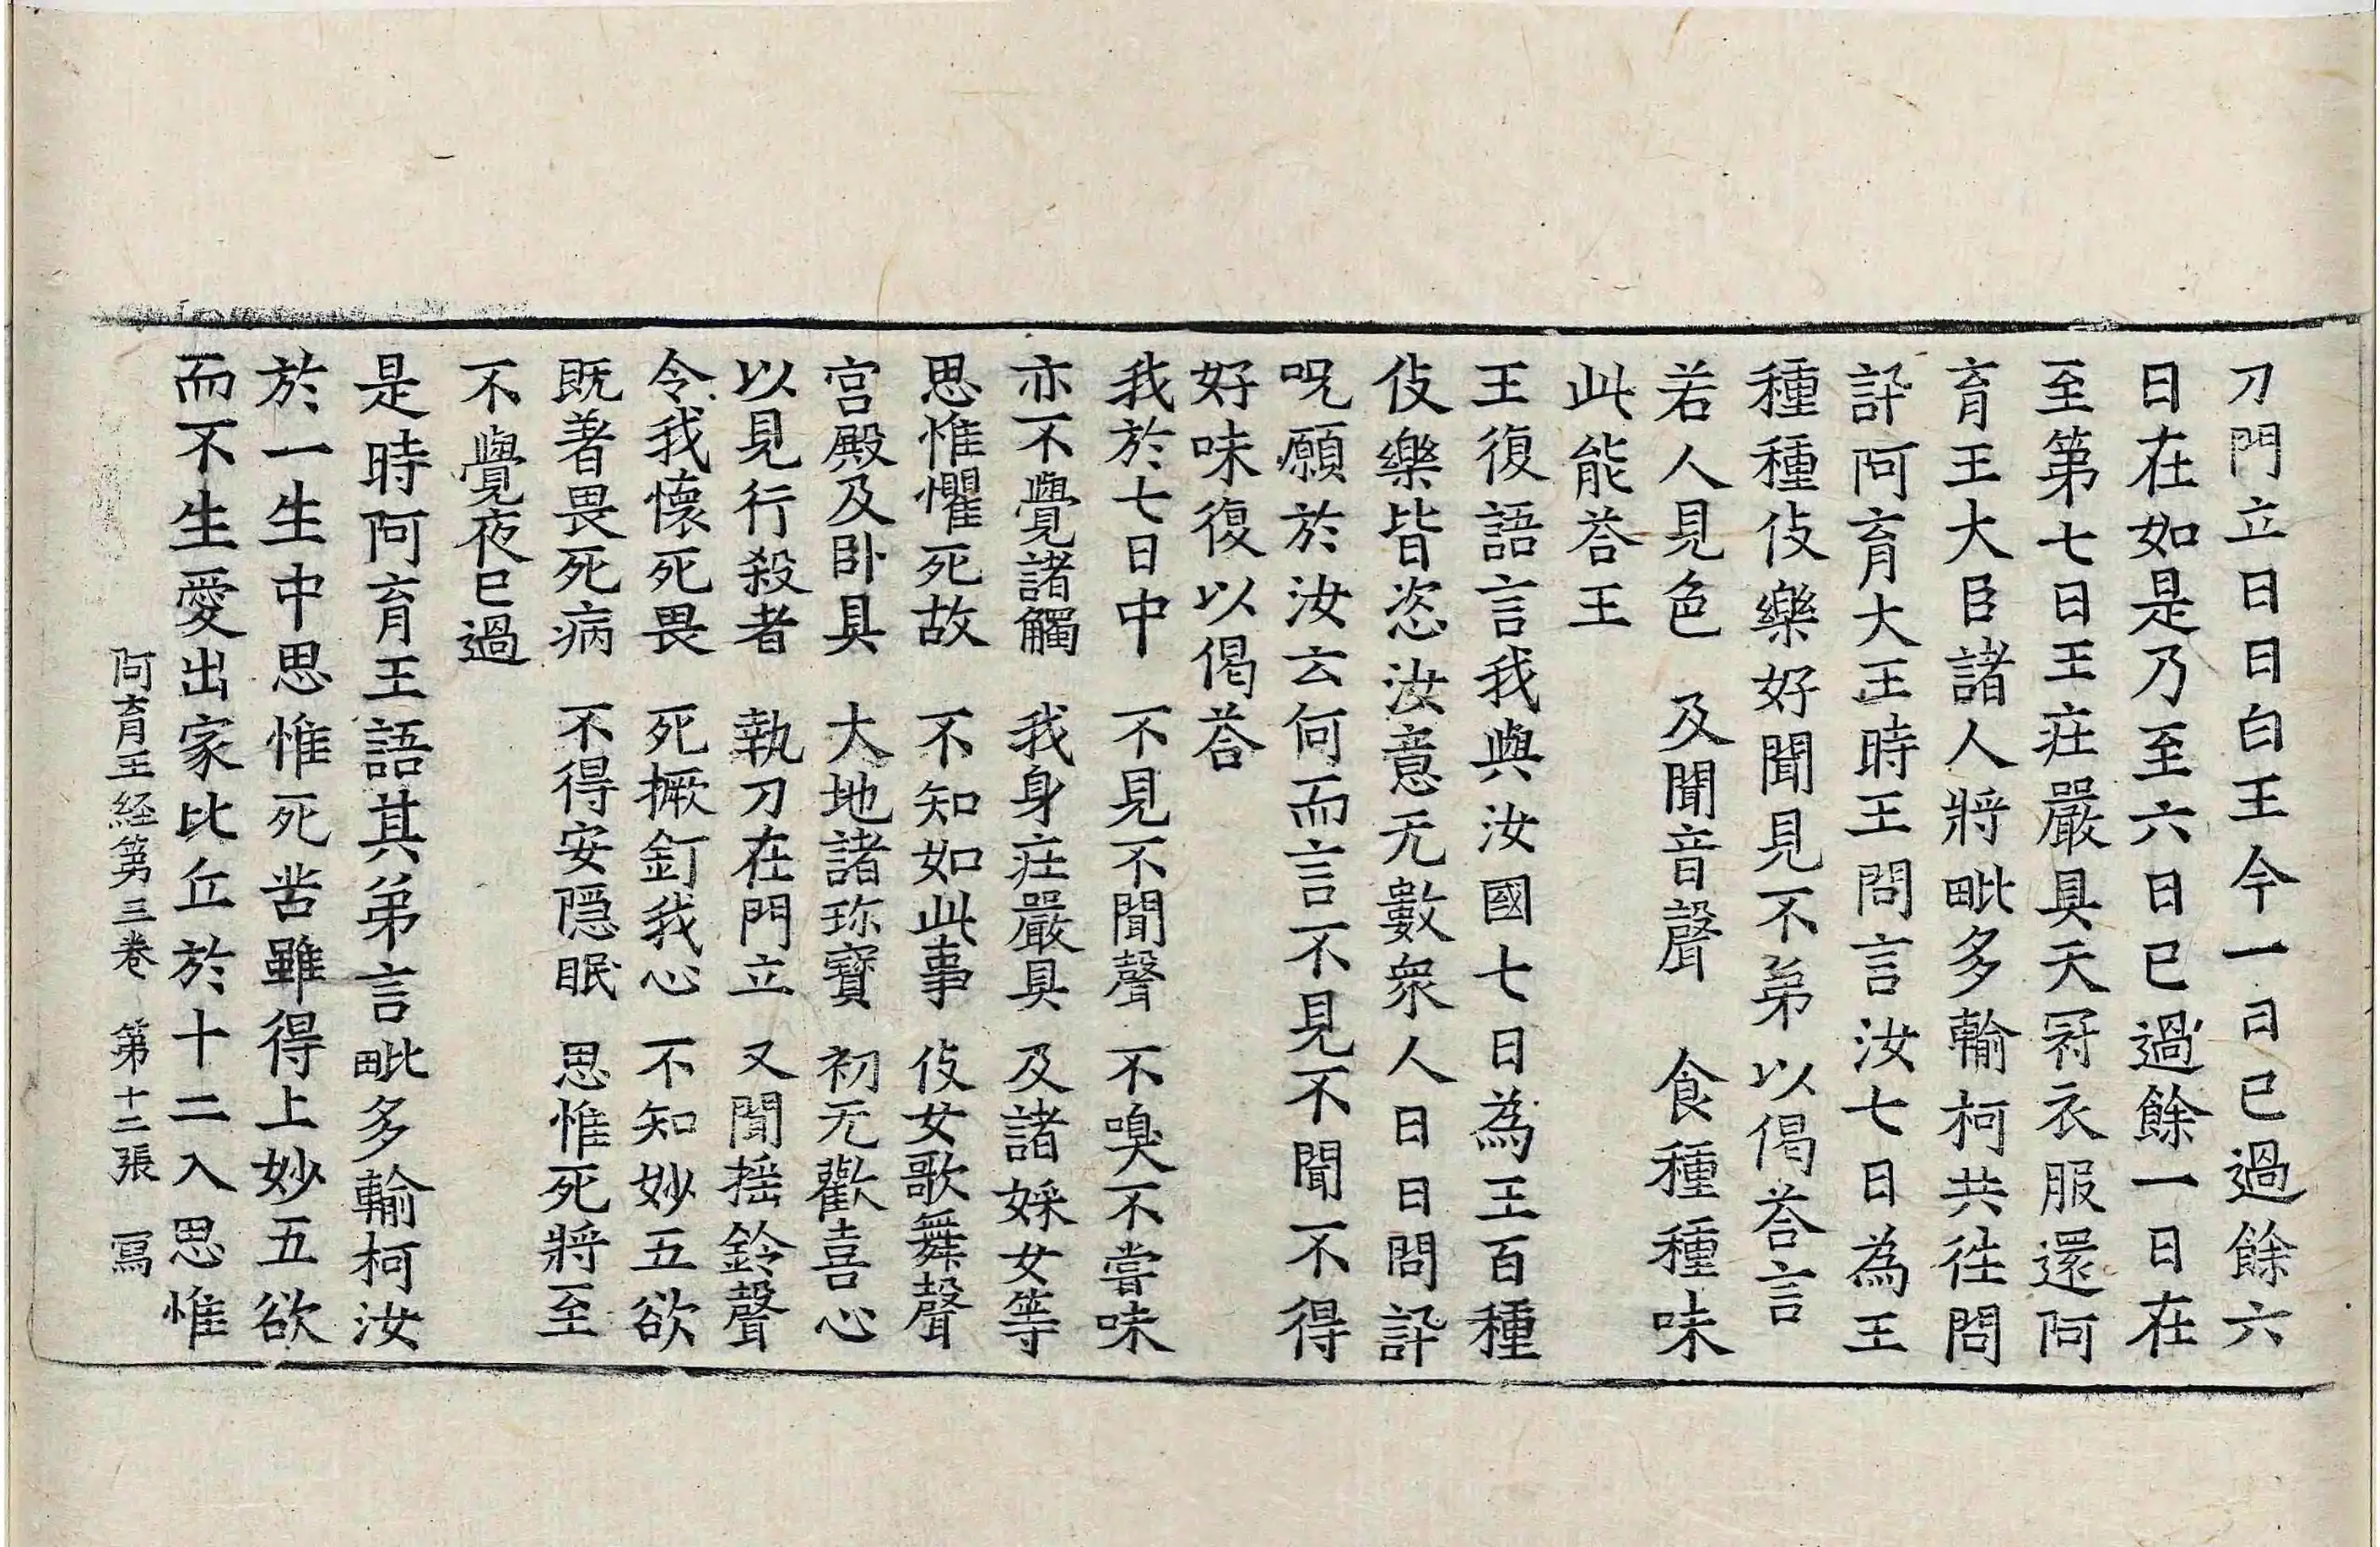 刀門立日日白王今一日已過餘六
日在如是乃至六日已過餘一日在
至第七日王㽵嚴具天冠衣服還阿
育王大臣諸人將毗多輸柯共徃問
訃阿育大王時王問言汝七日為王
種種伎樂好聞見不弟以偈荅言
若人見色　及聞音聲　食種種味
此能荅王
王復語言我與汝國七日為王百種
伎樂皆恣汝意无數衆人日日問訃
呪願於汝云何而言不見不聞不得
好味復以偈荅
我於七日中　不見不聞聲　不嗅不嘗味
亦不覺諸觸　我身㽵嚴具　及諸婇女等
思惟懼死故　不知如此事　伎女歌舞聲
宮殿及卧具　大地諸珎寶　初无歡喜心
以見行殺者　執刀在門立　又聞揺鈴聲
令我懷死畏　死橛釘我心　不知妙五欲
既著畏死病　不得安隱眠　思惟死將至
不覺夜已過
是時阿育王語其弟言毗多輸柯汝
於一生中思惟死苦雖得上妙五欲
而不生愛出家比丘於十二入思惟
阿育王経第三卷　第十二張　寫